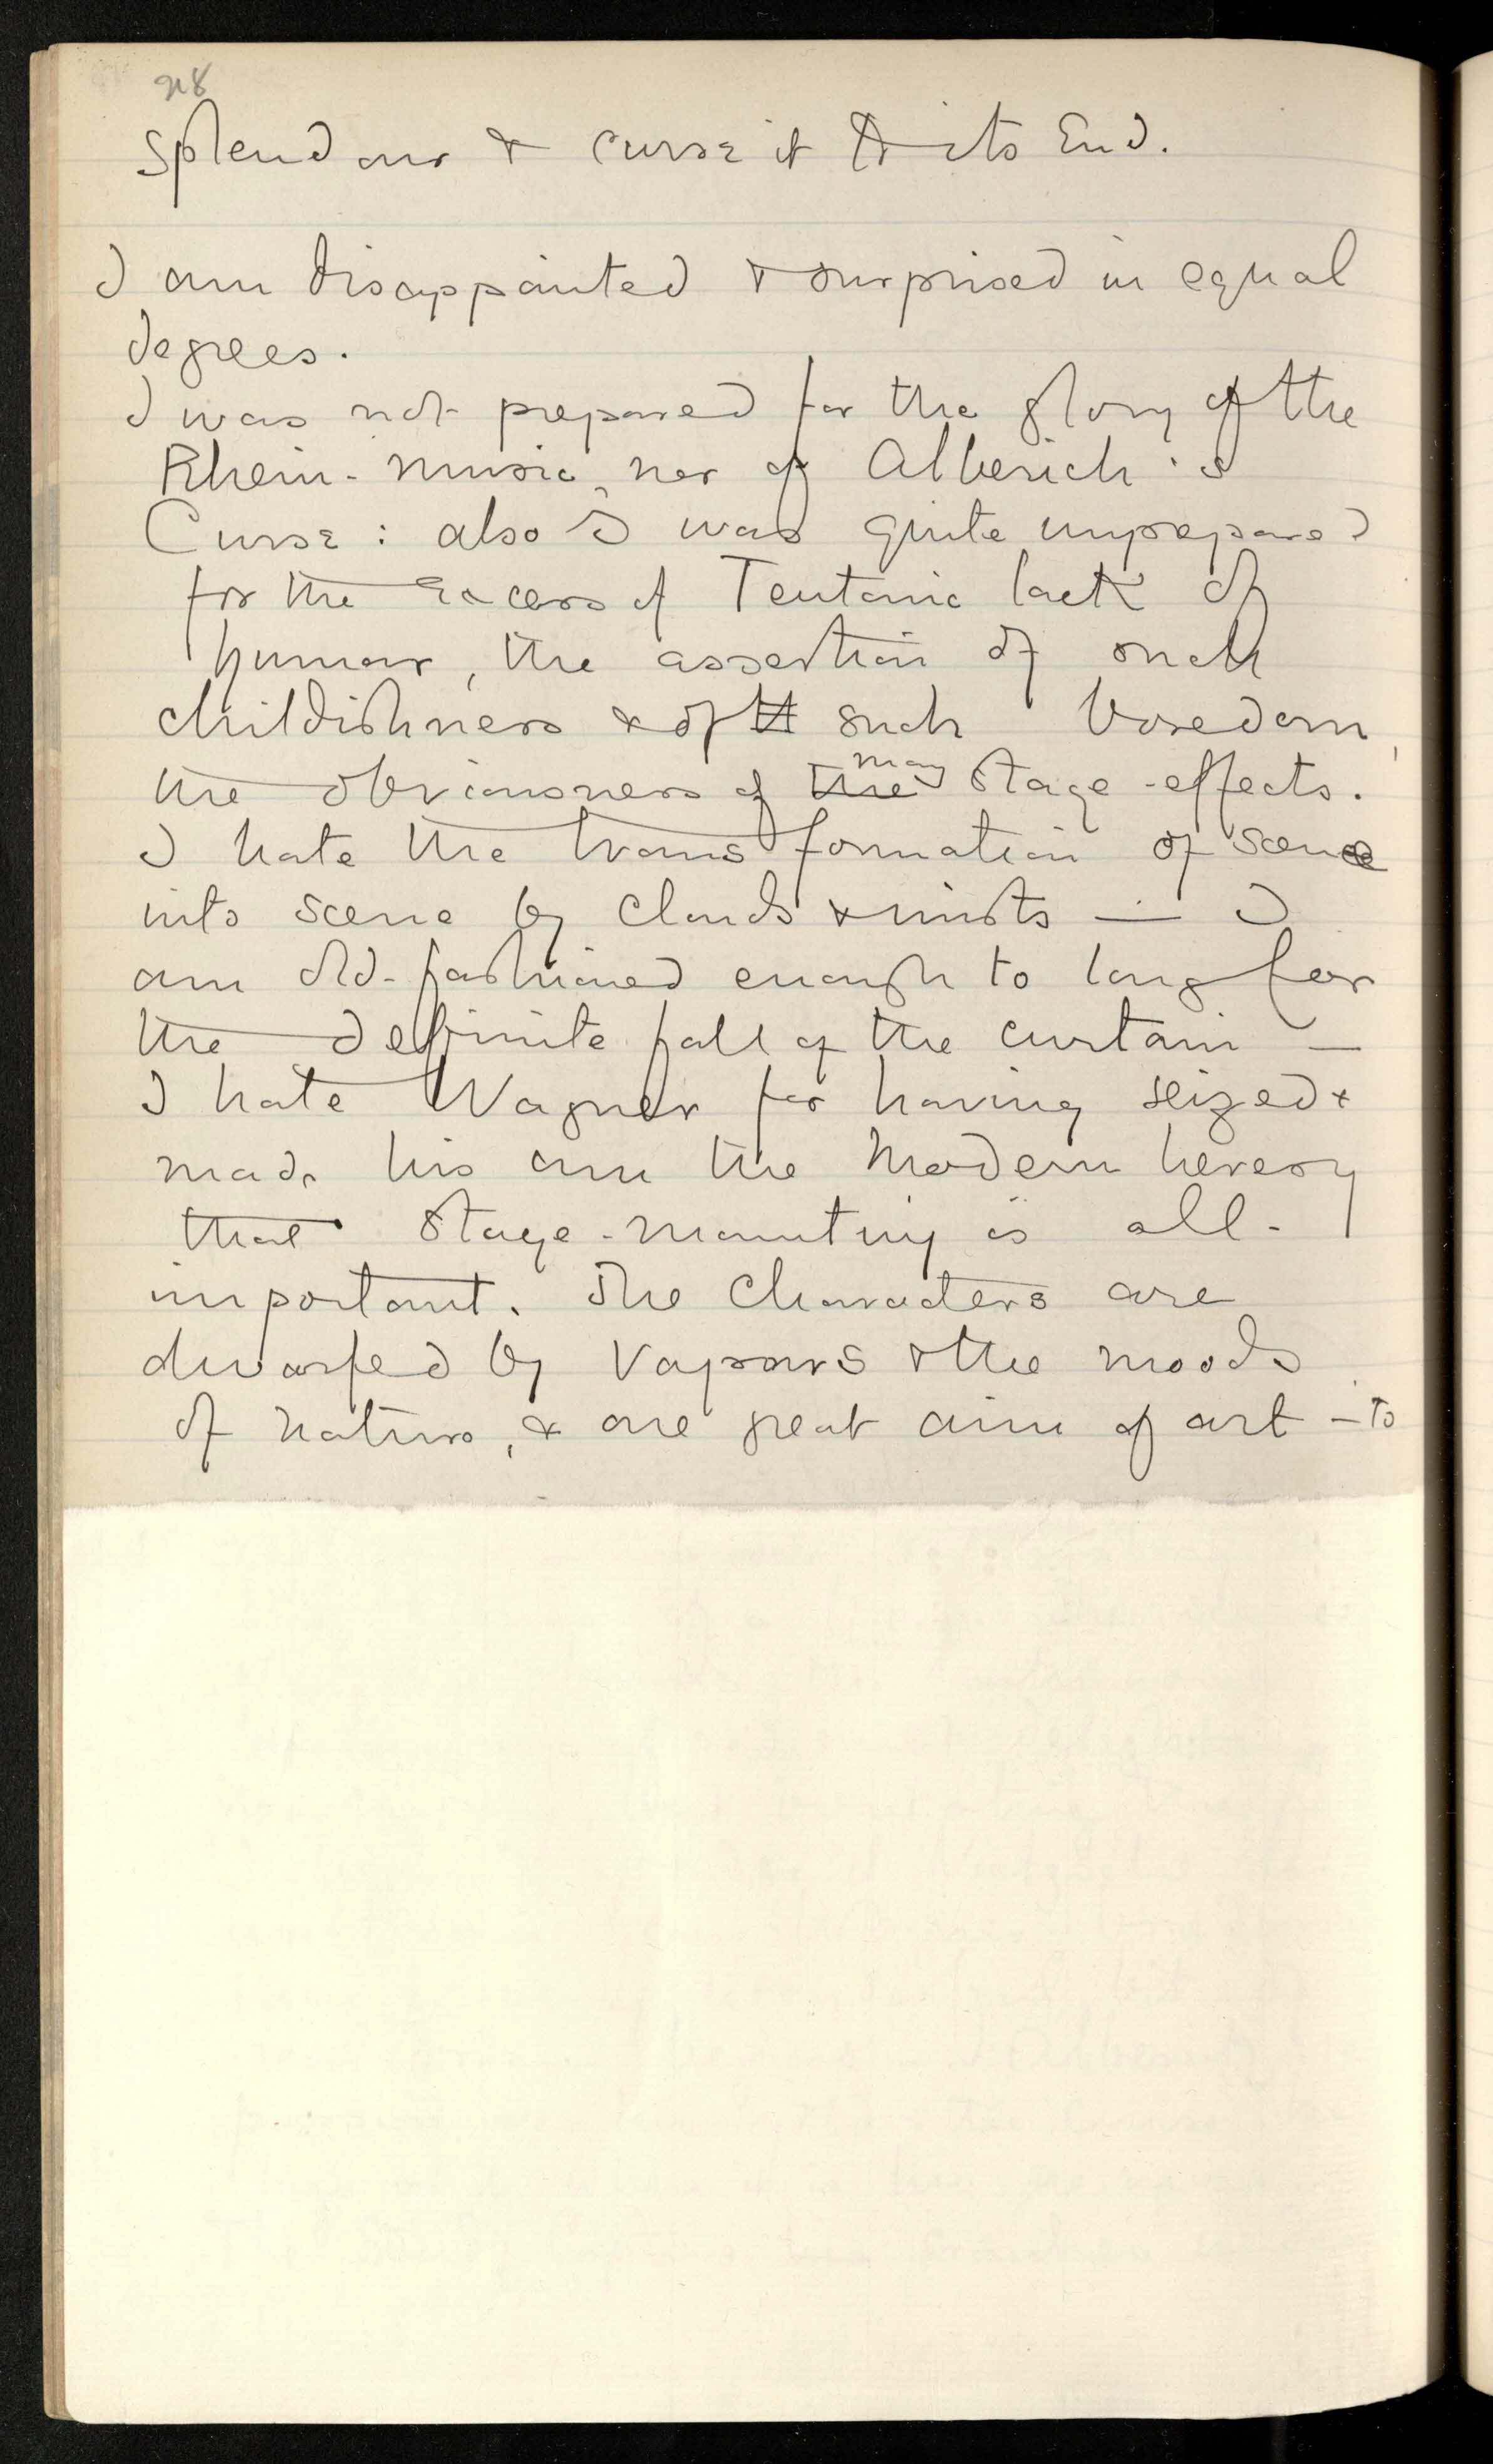 splendour & curse it to its End.
I am disappointed & surprised in equal
degrees.
I was not prepared for the glory of the
Rhein-music, nor of Alberich's
Curse: also I was quite unprepared
for the excess of Teutonic lack of
humour, the assertion of such
childishness & of such boredom,
the obviousness of the many stage-effects.
I hate the transformation of scene
into scene by clouds & mists — I
am old-fashioned enough to long for
the definite fall of the curtain —
I hate Wagner for having seized &
made his own the modern heresy
that stage-mounting is all-
important. The characters are
dwarfed by vapours & the moods
of nature, & one great aim of art — to